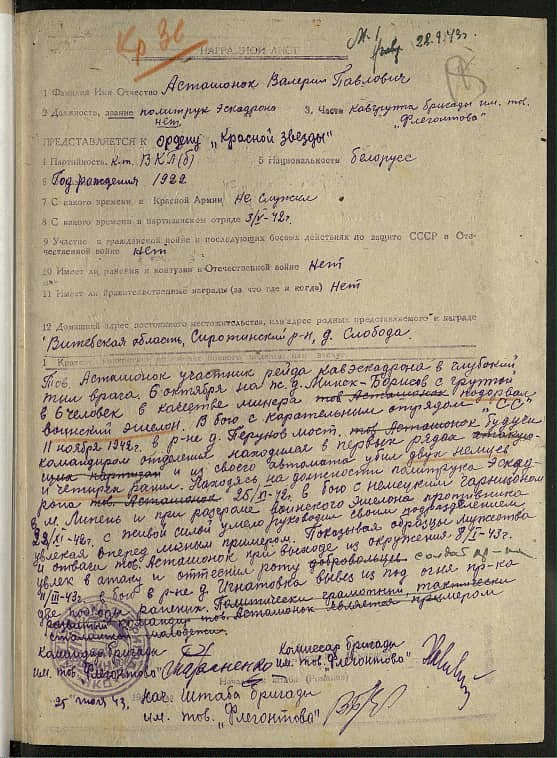 Кр Зв
28.9.43г.
НАГРАДНОЙ ЛИСТ
1 Фамилия Имя Отчество Асташонок Валерий Павлович
2 Должность, звание политрук эскадрона 3. Части Кавгруппа бригады им. тов.
нет, "Флегонтова"
ПРЕДСТАВЛЯЕТСЯ К ордену "Красной звезды"
4 Партийность, к-т. ВКП(б) 5 Национальность белорусс
6 Год рождения 1922
7 С какого времени в Красной Армии Не служил
8 С какого времени в партизанском отряде 3/V-42г.
9 Участие в гражданской войне и последующих боевых действиях по защите СССР в Оте-
чественной войне нет
10 Имеет ли ранения и контузии в Отечественной войне Нет
11 Имеет ли правительственные награды (за что где и когда) Нет
12 Домашний адрес постоянного местожительства, или адрес родных представляемого к награде
Витебская область, Сиротинский р-н, д. Слобода.
Тов. Асташонок участник рейда кавэскадрона в глубокий
тыл врага. 6 октября на ж.д. Минск-Борисов с группой
в 6 человек в качестве минера тов Асташонок подорвал
воинский эшелон. В бою с карательным отрядом "СС"
11 ноября 1942г. в р-не д. Перунов мост, тов. Асташонок будучи
командиром отделения находился в первых рядах атакую-
щих партизан и из своего автомата убил двух немцев
и четырех ранил. Находясь на должности политрука эскад-
рона тов. Асташонок 25/XI-42г. в бою с немецким гарнизоном
в м. Липень и при разгроме воинского эшелона противника
-42г. с живой силой умело руководил своим подразделением
увлекая вперед личным примером. Показывая образцы мужества
и отваги тов. Асташонок при выходе из окружения 8/ -43г.
увлек в атаку и оттеснил роту добровольцев солдат пр-ка
11/III-43г. в бою в р-не д. Игнатовка вывез из под огня пр-ка
две подводы раненых. Политически грамотный, тактически
развитый командир тов. Асташонок является примером
Командир бригады Комиссар бригады
им. тов. "Флегонтова" им. тов. "Флегонтова"
25 июля 43, нач. Штаба бригады
им. тов. "Флегонтова"